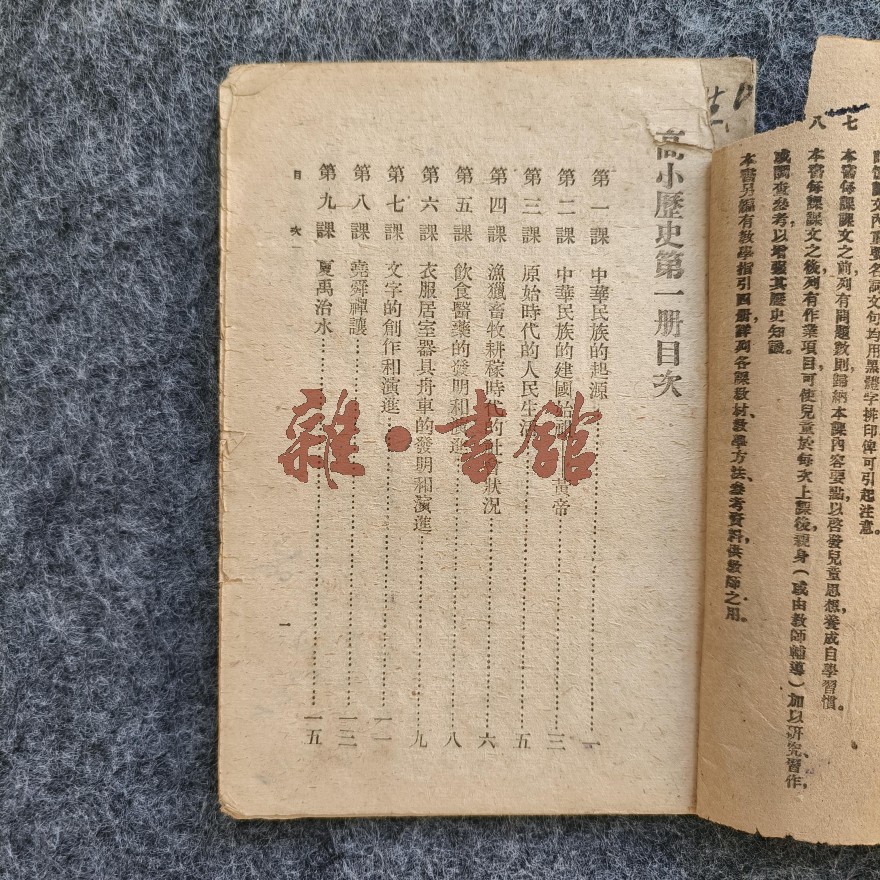 本書每課課文之前，列有問題數則，歸納本課內容要點，以啓發兒童思想，養成自學習慣。
七
本書每課課文之後，列有作業項目，可使兒童於每次上課後，親身（或由教師輔導）加以研究、習作，
八
或調查參考，以增強其歷史知識。
本書另編有教學指引四册，詳列各課教材、教學方法、參考資料，供教師之用。
高小歷史第一册目次
第一課 中華民族的起源 一
第二課 中華民族的建國始祖 黃帝 三
第三課 原始時代的人民生活 五
第四課 漁獵畜牧耕稼時代的社 狀況 六
第五課 飲食醫藥的發明和 進 八
第六課 衣服居室器具舟車的發明和演進 九
第七課 文字的創作和演進 一一
第八課 堯舜禪讓 一三
第九課 夏禹治水 一五
目次 一
一
雜·書館